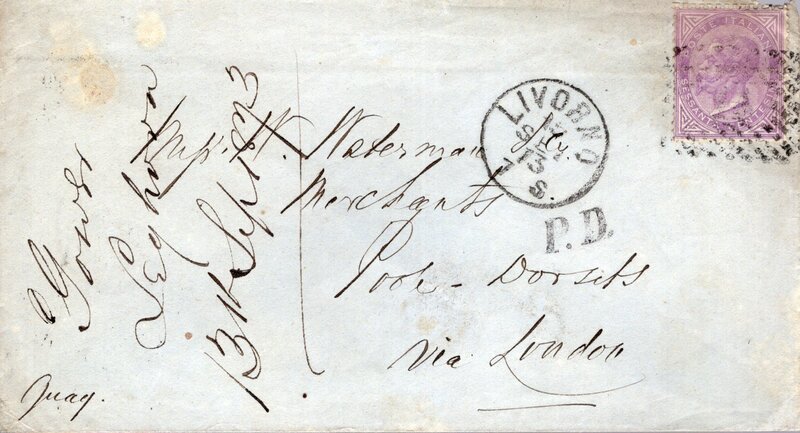 POSTE ITALIANE
SESSANTA CENTESIMI
LIVORNO
13
SET
73
7 S.
P.D.
Mess. H. Waterman
Merchants
Poole - Dorsets
via London
Leghorn
13th Sept 1873